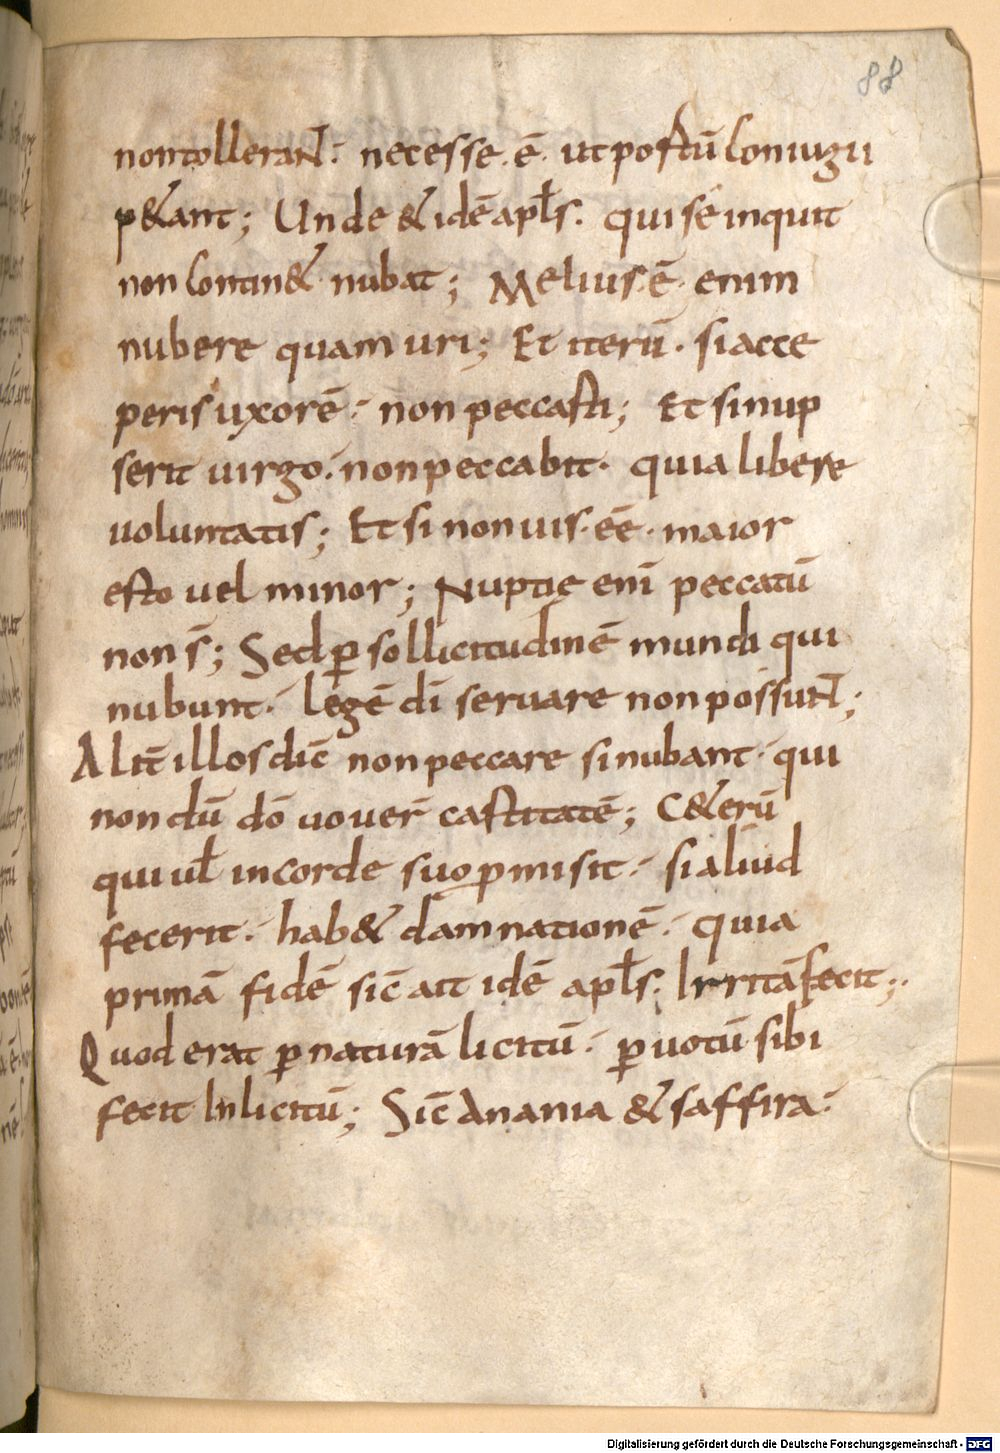 88
non tolleraNt. necesse. ē. ut postū coniugii
p&ant; Unde & idē apl̄s. qui se inquit
non contin& nubat; Melius. ē. enim
nubere quam uri; Et iterū. si acce
peris uxorē. non peccasti; Et si nup
serit uirgo. non peccabit. quia libere
uoluntatis; Et si non uis. eē. maior
esto uel minor; Nuptię eni̅ peccatū
non s̄; Sed ꝑ sollicitudinē mundi qui
nubunt. legē dī seruare non possuNt;
Alit̄ illos dic̄ non peccare si nubant. qui
non dū dō uouer̄ castitatē; C&erū
qui ul̄ in corde suo ꝑmisit. si aliud
fecerit. hab& damnationē. quia
primā fidē sic̄ ait idē apl̄s. Irritā fecit;.
Quod erat ꝑ naturā licitū. ꝑ uotū sibi
fecit Inlicitū; Sic̄ Anania & saffira.
Digitalisierung gefördert durch die Deutsche Forschungsgemeinschaft - DFG